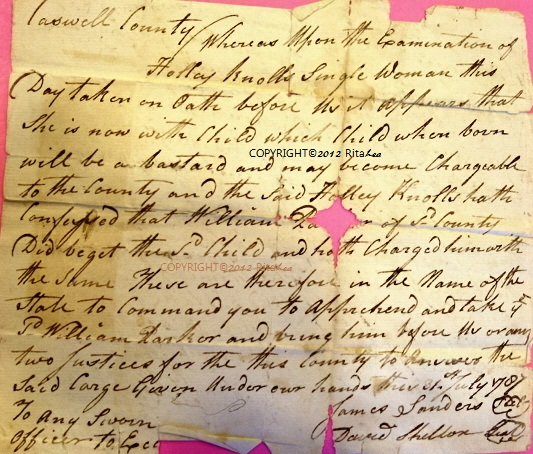 Caswell County
Whereas Upon the Examination of
Holley Knolls Single Woman this
Day taken on Oath before Us it appears that
She is now with Child which Child when born
COPYRIGHT©2012 RitaLea
will be a bastard and may become Chargeable
to the County and the Said Holley Knolls hath
Confessed that William Pa r of Sd County
Did beget the Sd Child and hath Charged him with
COPYRIGHT©2012 RitaLea
the Same These are therefore in the Name of the
State to Command you to Apprehend and take ye
Sd William Parkor and bring him before Us or any
two Justices for the this County to Answer the
Said Carge Given Under our hands this July 1787
James Sanders
To Any Sworn
David Shelton Seal
Officer to Exe